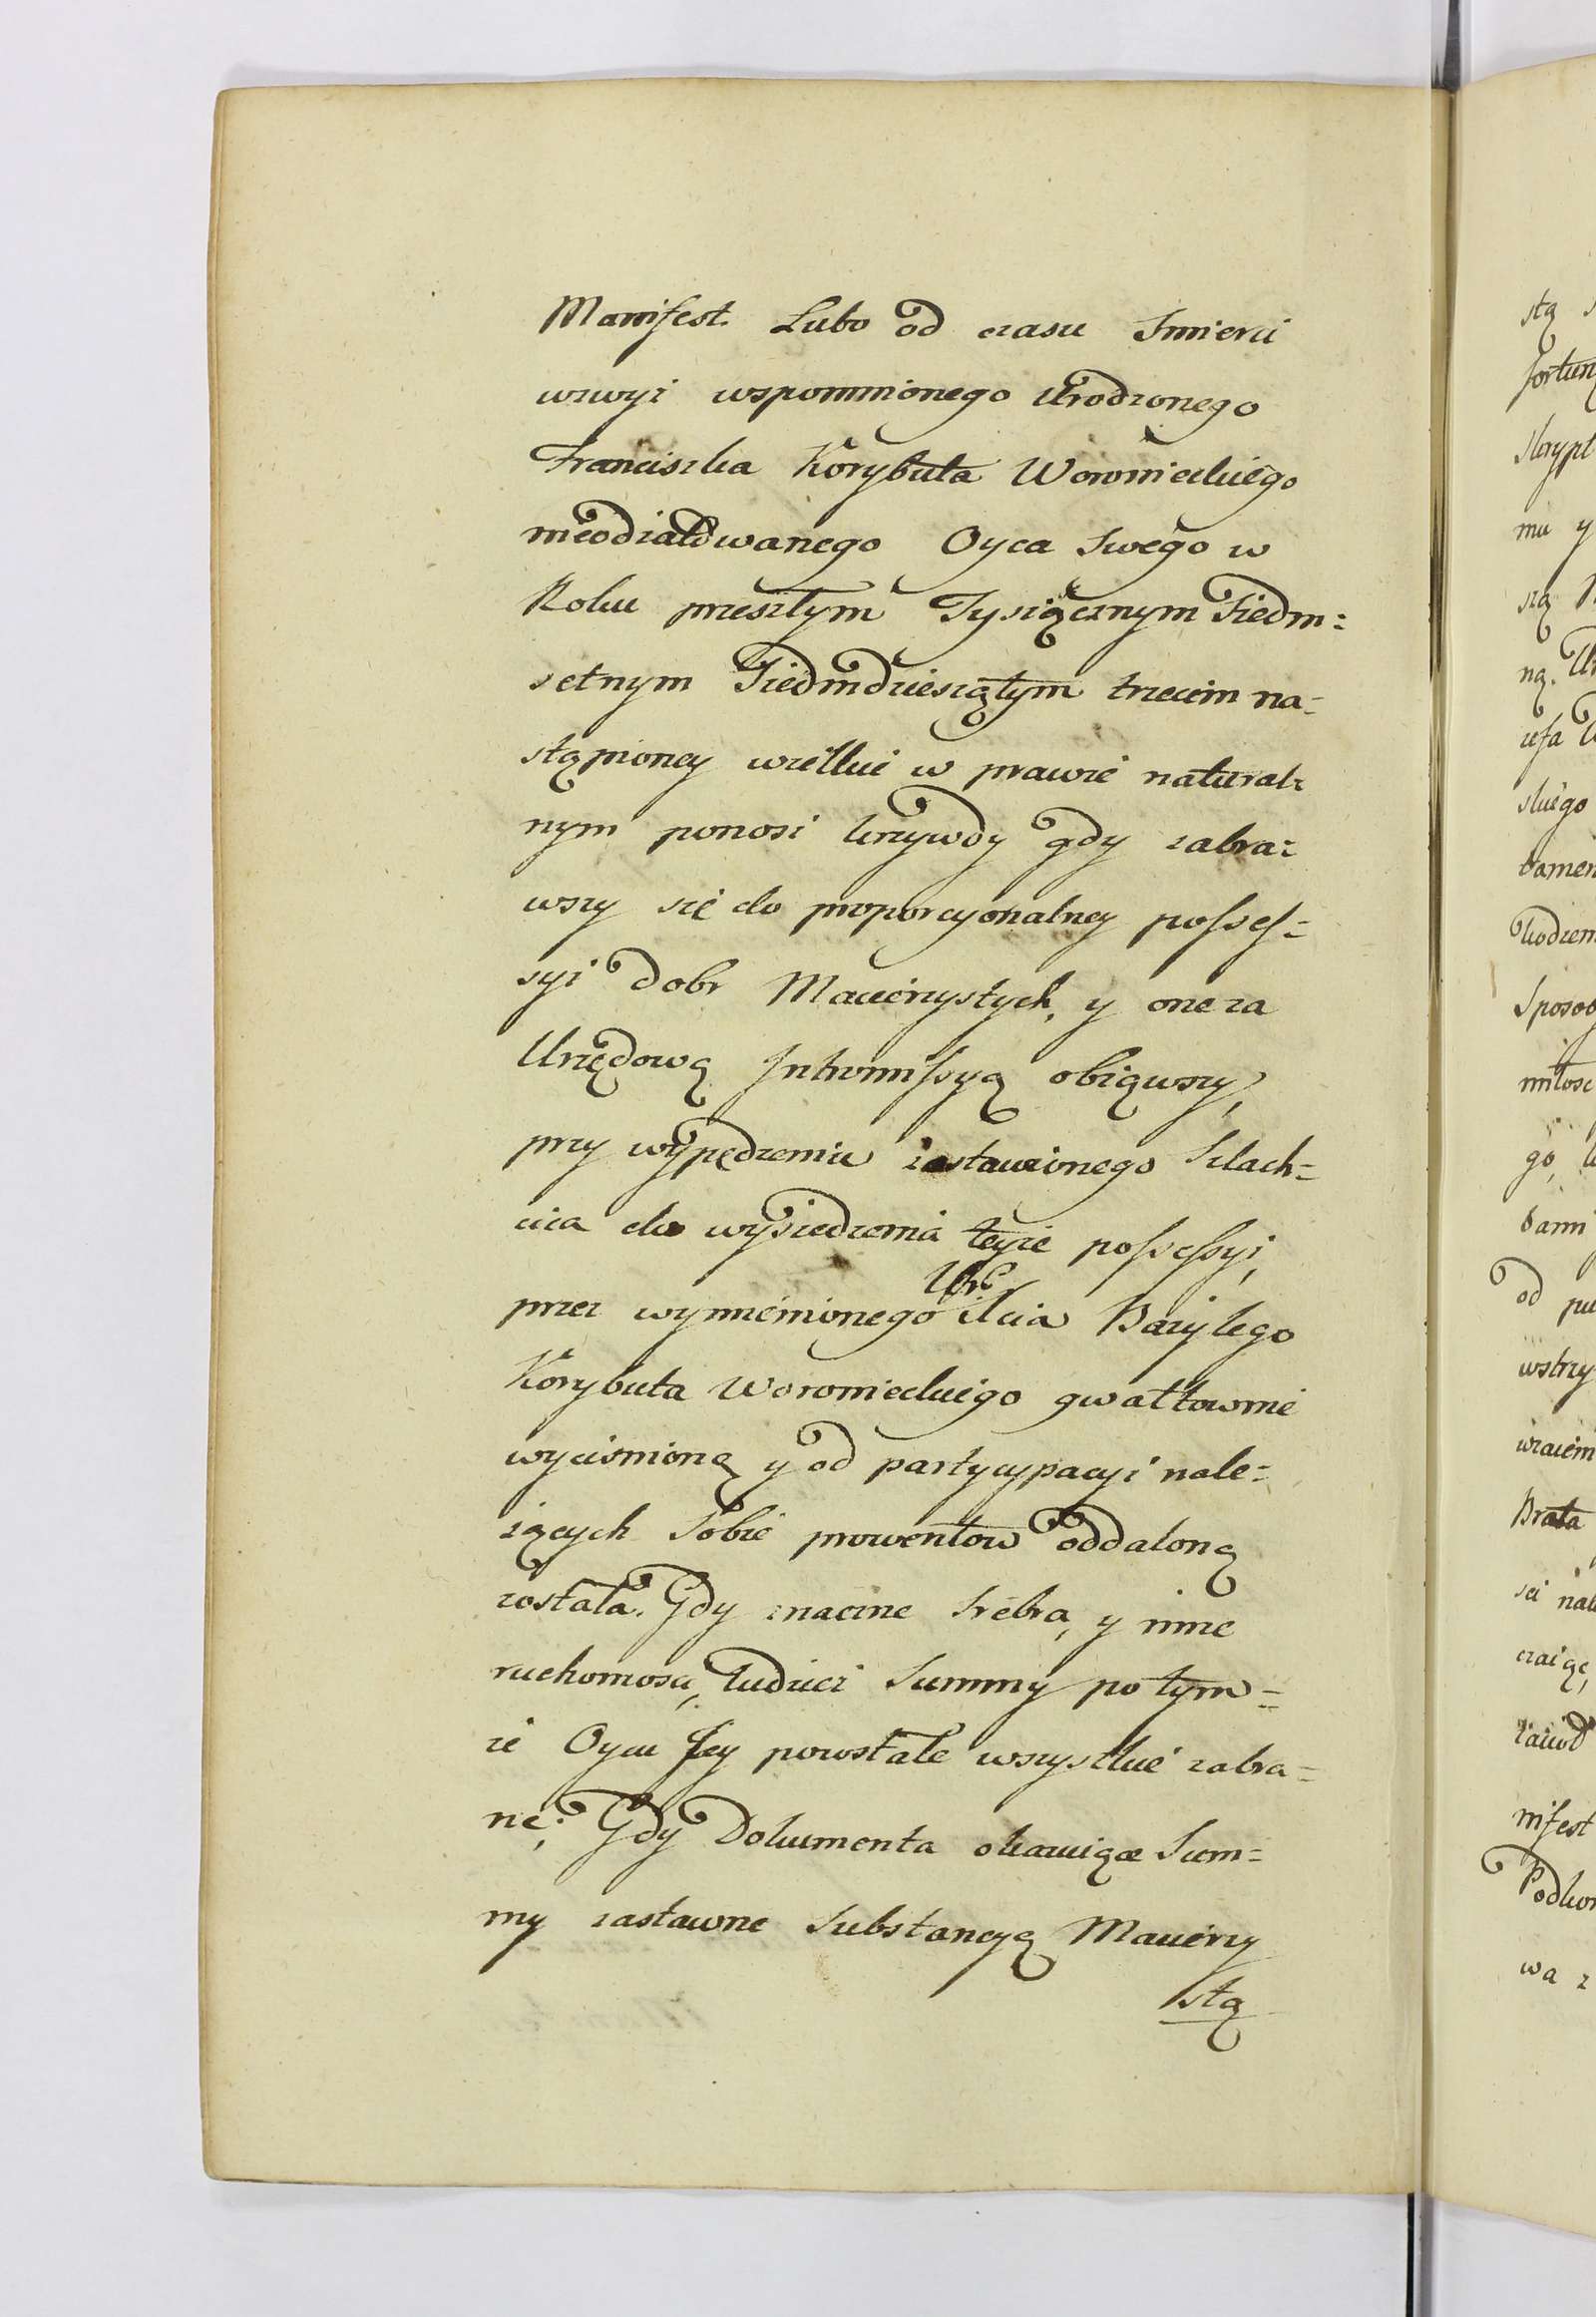 Manifest. Lubo od czasu Smierci
wzwyż wspomnionego Urodzonego
Franciszka Korybuta Woronieckiego
nieodżałowanego Oyca Swego w
Roku przeszłym Tysiącznym Siedm=
setnym Siedmdziesiątym trzecim na=
stąpioney wielkie w prawie natural=
nym ponosi krzywdy gdy zabra=
wszy się do proporcyonalney possess=
syi dobr Macierzystych, y one za
Urzędową Intromissyą obiąwszy,
przy wypędzeniu zostawionego Szlach=
cica do wysiedzenia teyże possessyi,
Ur
przez wymienionego Xcia Bazylego
Korybuta Woronieckiego gwałtownie
wyciśnioną y od partycypacyi nale=
żących Sobie prowentow oddaloną
została. Gdy znaczne Srebra, y inne
ruchomosci, tudzież Summy po tym=
że Oycu Jey powstałe wszystkie zabra=
ne; Gdy Dokumenta okazuiące Sum=
my zastawne Substancyą Macierzy
stą
stą
fortun
skrypt
mu y
ną. Ur
zefa
skiego
bamen
Sposob
miłosc
go,
bami
od
wstrzy
Brata
sci
nifest
Podko
wa z